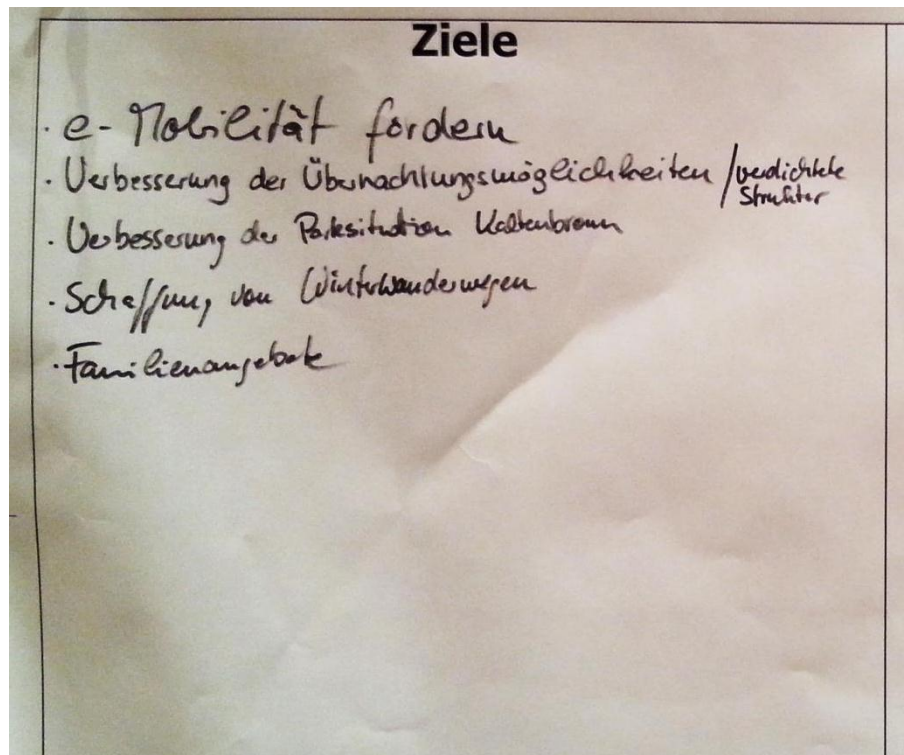 Ziele
· e-Mobilität fördern
· Verbesserung der Übernachtungsmöglichkeiten / verdichtete
Struktur
· Verbesserung der Parksituation Kaltenbronn
· Schaffung von Winterwanderwegen
· Familienangebote